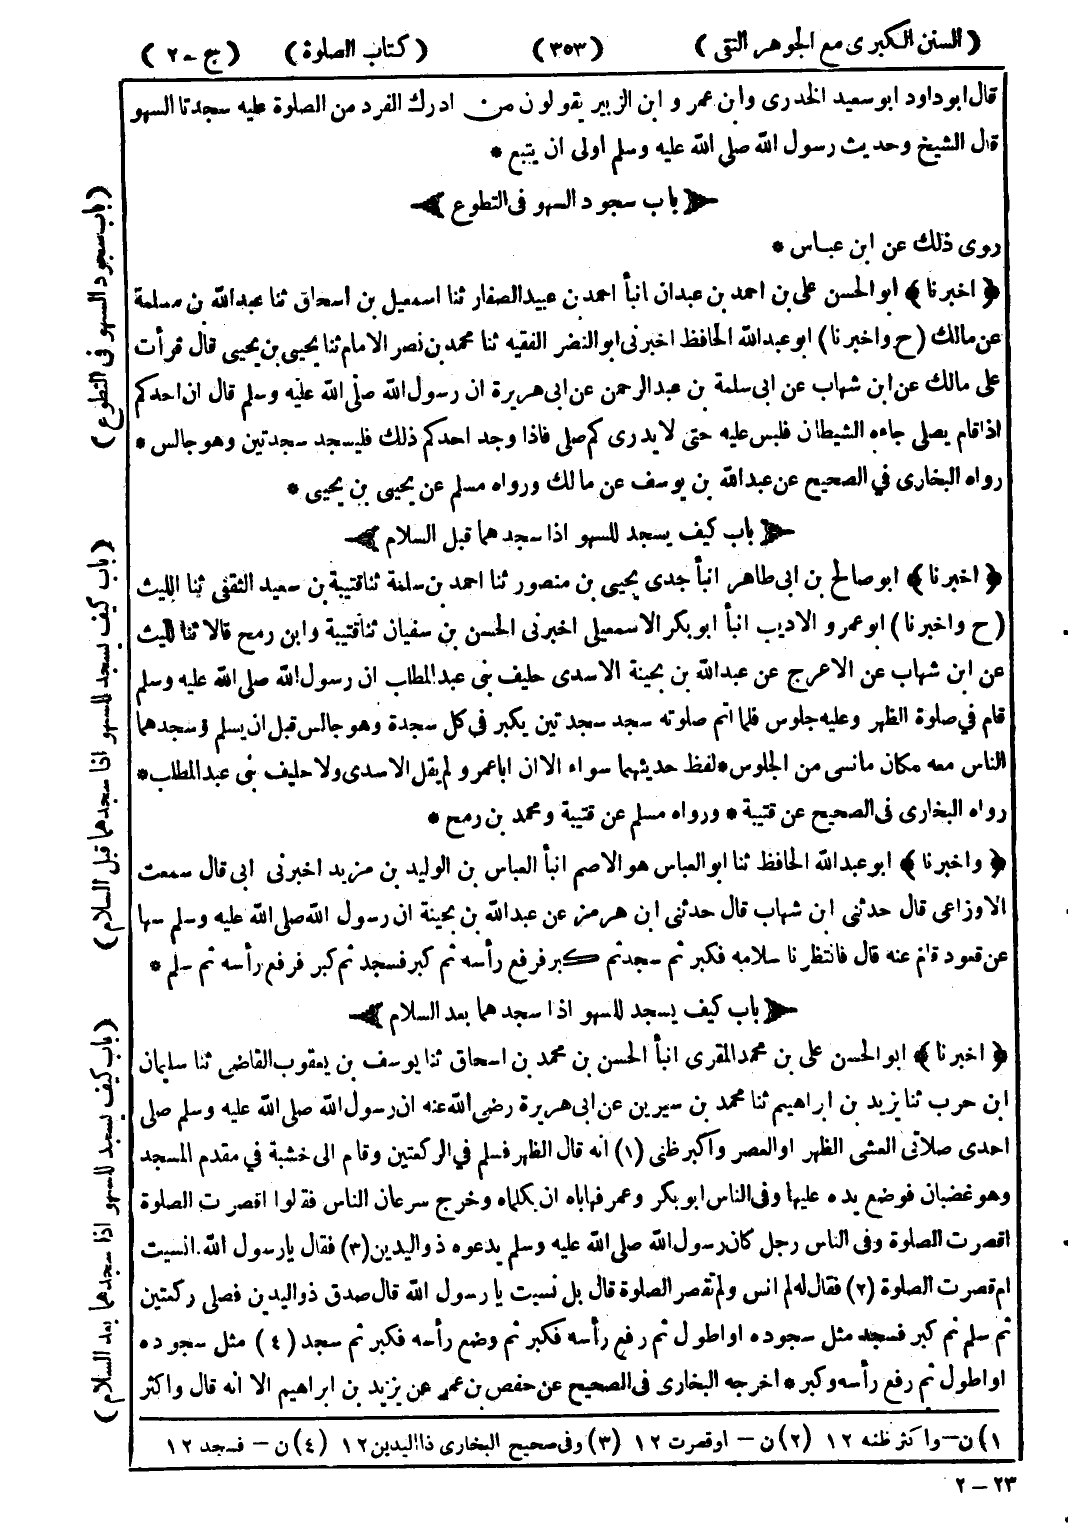 (السنن الكبرى مع الجوهر النقى) (٣٥٣) (كتاب الصلوة) (ج - ٢)
قال ابو داود ابو سعيد الخدرى وابن عمر و ابن الزبير يقولون من ادرك الفرد من الصلوة عليه سجدتا السهو
قال الشيخ وحديث رسول الله صلى الله عليه وسلم اولى ان يتبع *
﴿ باب سجود السهو فى التطوع ﴾
روى ذلك عن ابن عباس *
﴿ اخبرنا ﴾ ابو الحسن على بن احمد بن عبدان انبأ احمد بن عبيد الصفار ثنا اسمعيل بن اسحاق ثنا عبد الله بن مسلمة
عن مالك (ح واخبرنا) ابو عبد الله الحافظ اخبرنى ابو النضر الفقيه ثنا محمد بن نصر الامام ثنا يحيى بن يحيى قال قرأت
على مالك عن ابن شهاب عن ابى سلمة بن عبد الرحمن عن ابى هريرة ان رسول الله صلى الله عليه وسلم قال ان احدكم
اذا قام يصلى جاءه الشيطان فلبس عليه حتى لا يدرى كم صلى فاذا وجد احدكم ذلك فليسجد سجدتين وهو جالس *
رواه البخارى في الصحيح عن عبد الله بن يوسف عن مالك ورواه مسلم عن يحيى بن يحيى *
﴿ باب كيف يسجد للسهو اذا سجدهما قبل السلام ﴾
﴿ اخبرنا ﴾ ابو صالح بن ابى طاهر انبأ جدى يحيى بن منصور ثنا احمد بن سلمة ثنا قتيبة بن سعيد الثقفى ثنا الليث
(ح واخبرنا) ابو عمرو الاديب انبأ ابو بكر الاسمعيلى اخبرنى الحسن بن سفيان ثنا قتيبة وابن رمح قالا ثنا الليث
عن ابن شهاب عن الاعرج عن عبد الله بن بحينة الاسدى حليف بنى عبد المطلب ان رسول الله صلى الله عليه وسلم
قام في صلوة الظهر وعليه جلوس فلما اتم صلوته سجد سجدتين يكبر فى كل سجدة وهو جالس قبل ان يسلم وسجدهما
الناس معه مكان مانسى من الجلوس*لفظ حديثهما سواء الاان اباعمرو لم يقل الاسدى ولا حليف بنى عبد المطلب*
رواه البخارى فى الصحيح عن قتيبة * ورواه مسلم عن قتيبة ومحمد بن رمح *
﴿ واخبرنا ﴾ ابو عبد الله الحافظ ثنا ابو العباس هو الاصم انبأ العباس بن الوليد بن مزيد اخبرنى ابى قال سمعت
الاوزاعى قال حدثنى ابن شهاب قال حدثنى ابن هرمز عن عبد الله بن بحينة ان رسول الله صلى الله عليه وسلم سها
عن قعود قام عنه قال فانتظرنا سلامه فكبر ثم سجد ثم كبر فرفع رأسه ثم كبر فسجد ثم كبر فرفع رأسه ثم سلم *
﴿ باب كيف يسجد للسهو اذا سجدهما بعد السلام ﴾
﴿ اخبرنا ﴾ ابو الحسن على بن محمد المقرى انبأ الحسن بن محمد بن اسحاق ثنا يوسف بن يعقوب القاضى ثنا سليمان
ابن حرب ثنا يزيد بن ابراهيم ثنا محمد بن سيرين عن ابى هريرة رضى الله عنه ان رسول الله صلى الله عليه وسلم صلى
احدى صلاتى العشى الظهر او العصر واكبر ظنى (١) انه قال الظهر فسلم في الركعتين وقام الى خشبة في مقدم المسجد
وهو غضبان فوضع يده عليها وفى الناس ابو بكر وعمر فهاباه ان يكلماه وخرج سرعان الناس فقالوا اقصرت الصلوة
اقصرت الصلوة وفى الناس رجل كان رسول الله صلى الله عليه وسلم يدعوه ذو اليدين(٣) فقال يارسول الله انسيت
ام قصرت الصلوة (٢) فقال له لم انس ولم تقصر الصلوة قال بل نسيت يا رسول الله قال صدق ذو اليدين فصلى ركعتين
ثم سلم ثم كبر فسجد مثل سجوده او اطول ثم رفع رأسه فكبر ثم وضع رأسه فكبر ثم سجد (٤) مثل سجوده
او اطول ثم رفع رأسه وكبر * اخرجه البخارى فى الصحيح عن حفص بن عمر عن يزيد بن ابراهيم الا انه قال واكثر
١) ن - واكثر ظنه ١٢ (٢) ن - او قصرت ١٢ (٣) وفى صحيح البخارى ذا اليدين ١٢ (٤) ن - فسجد ١٢
٢٣ - ٢
(باب سجود السهو فى التطوع)
(باب كيف يسجد للسهو اذا سجدهما قبل السلام)
(باب كيف يسجد للسهو اذا سجدهما بعد السلام)